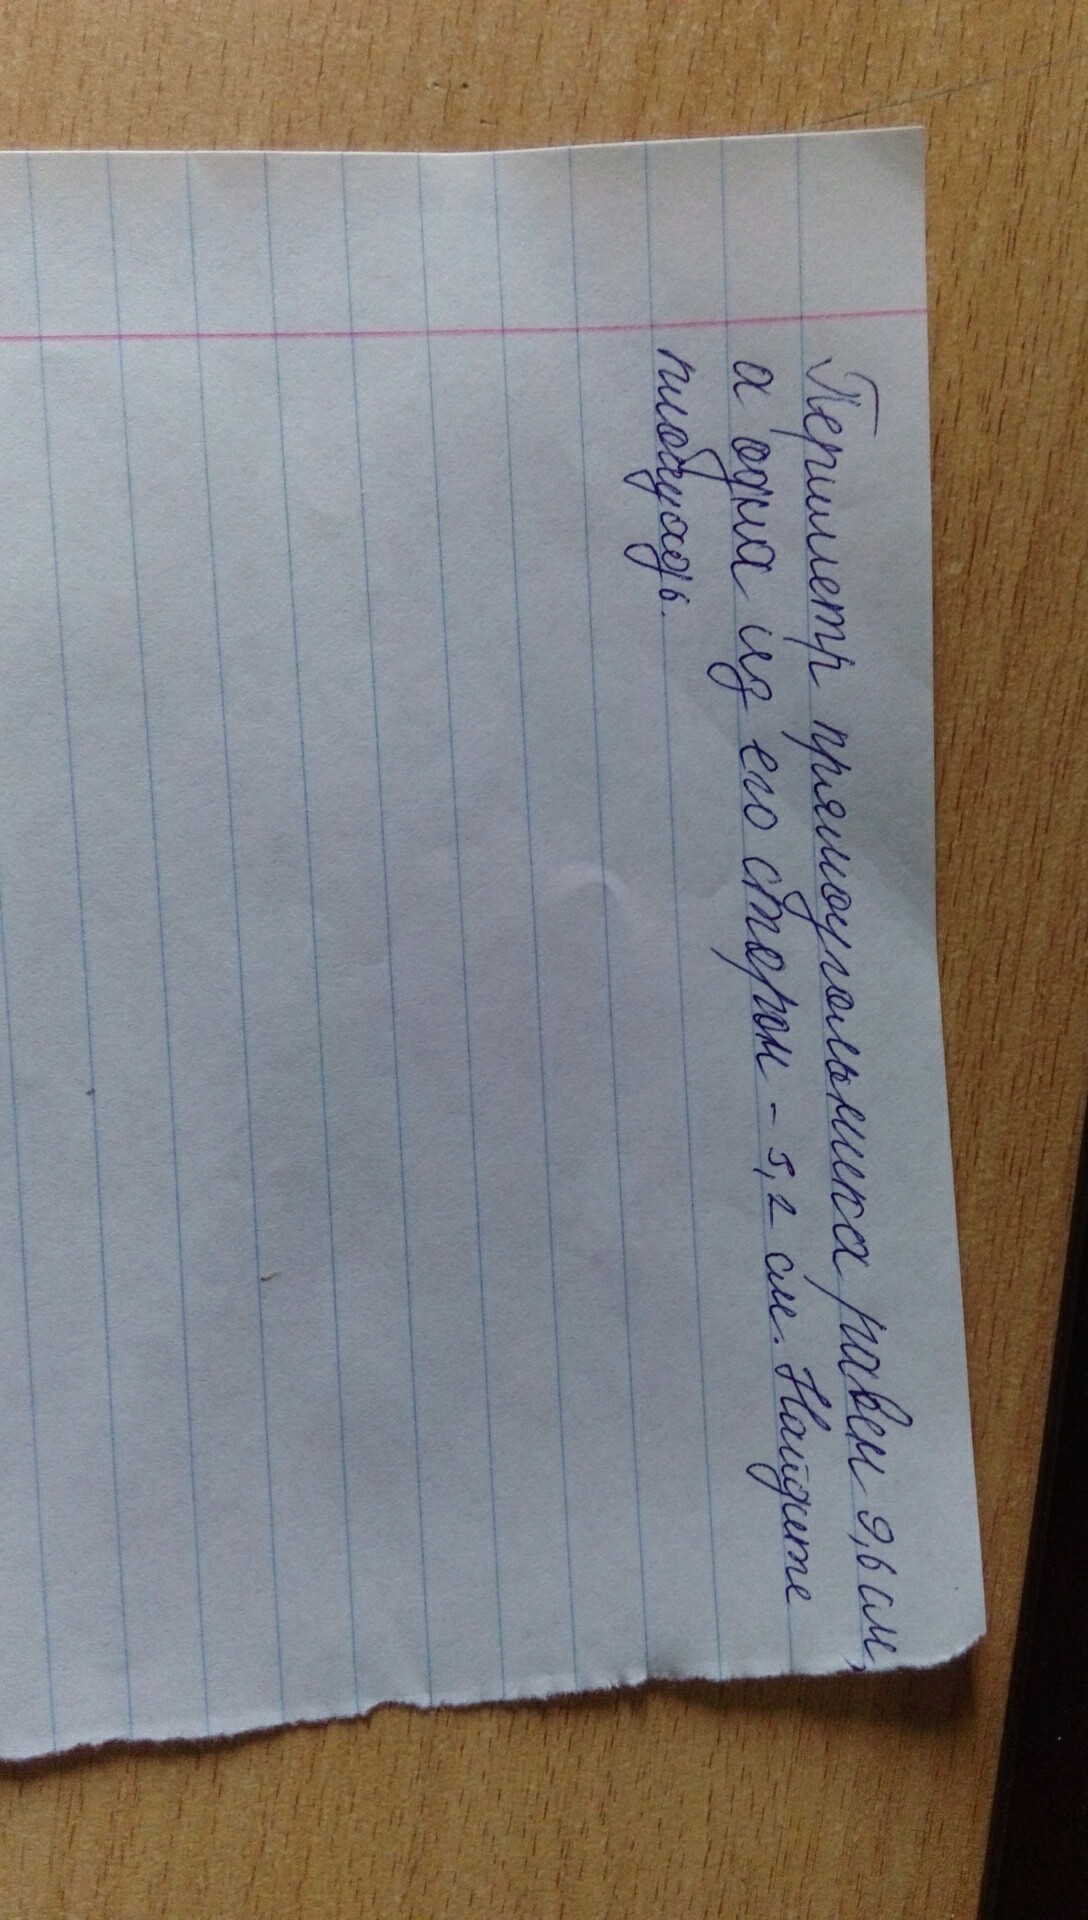 Периметр прямоугольника равен 9,6 см,
а одна из его сторон - 3,2 см. Найдите
площадь.